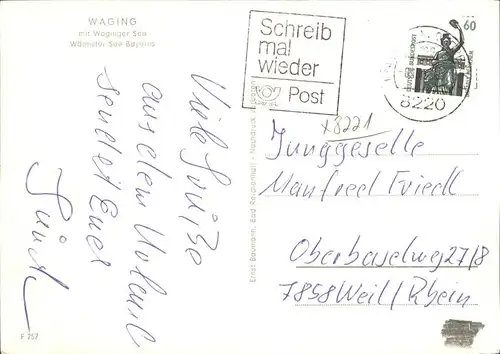 WAGING
mit Waginger See
Wärmster See Bayerns
Schreib
mal
wieder
Post
60
DEUTSCHE BUNDESPOST
8220
x8221
Viele Grüße
aus dem Urlaub
sendet Euch
Junggeselle
Manfred Friedl
Oberbaselweg 27/8
7858 Weil/Rhein
Ernst Baumann, Bad Reichenhall - Nachdruck
F 757